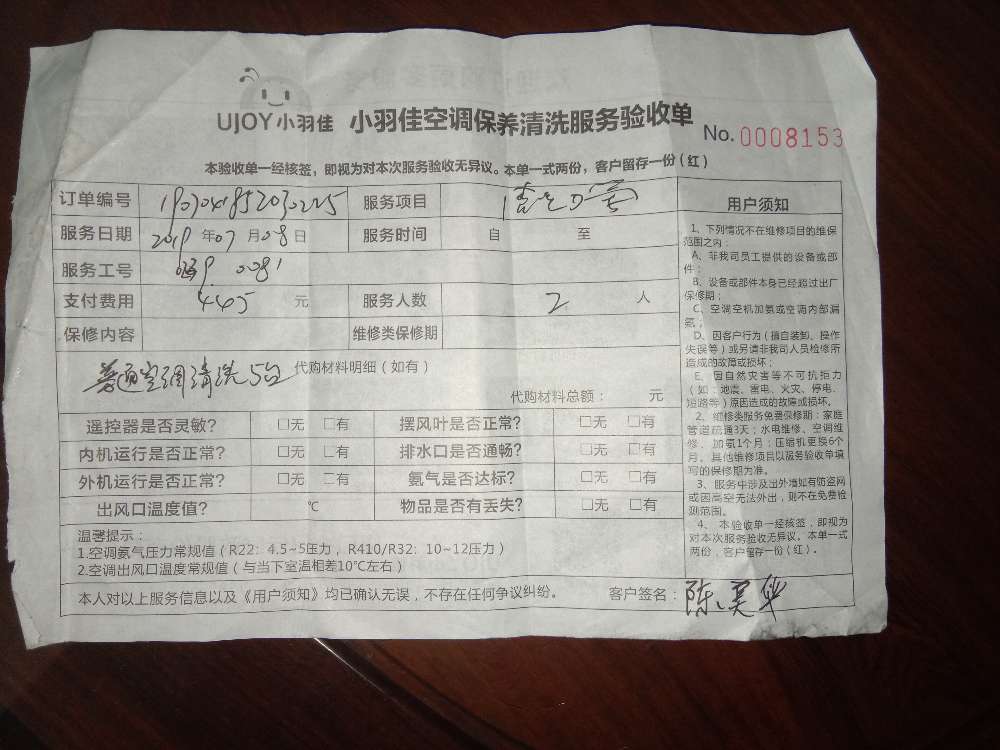 UJOY小羽佳 小羽佳空调保养清洗服务验收单
No. 0008153
本验收单一经核签，即视为对本次服务验收无异议。本单一式两份，客户留存一份（红）
订单编号 服务项目
服务日期 2019 年 07 月 08 日 服务时间 自 至
服务工号 0081
支付费用 445 元 服务人数 2 人
保修内容 维修类保修期
普通空调清洗5台 代购材料明细（如有）
代购材料总额： 元
遥控器是否灵敏? □无 □有 摆风叶是否正常? □无 □有
内机运行是否正常? □无 □有 排水口是否通畅? □无 □有
外机运行是否正常? □无 □有 氨气是否达标? □无 □有
出风口温度值? ℃ 物品是否有丢失? □无 □有
温馨提示：
1.空调氨气压力常规值（R22：4.5~5压力，R410/R32：10~12压力）
2.空调出风口温度常规值（与当下室温相差10℃左右）
本人对以上服务信息以及《用户须知》均已确认无误，不存在任何争议纠纷。 客户签名：陈昊华
用户须知
1、下列情况不在维修项目的维保
范围之内：
A、非我司员工提供的设备或部
件；
B、设备或部件本身已经超过出厂
保修期；
C、空调空机加氨或空调内部漏
氨；
D、因客户行为（擅自装卸、操作
失误等）或另请非我司人员检修所
造成的故障或损坏；
E、因自然灾害等不可抗拒力
（如：地震、雷电、火灾、停电、
短路等）原因造成的故障或损坏。
2、维修类服务免费保修期：家庭
管道疏通3天；水电维修、空调维
修、加氨1个月；压缩机更换6个
月。其他维修项目以服务验收单填
写的保修期为准。
3、服务中涉及出外墙如有防盗网
或因高空无法外出，则不在免费检
测范围。
4、本验收单一经核签，即视为
对本次服务验收无异议。本单一式
两份，客户留存一份（红）。